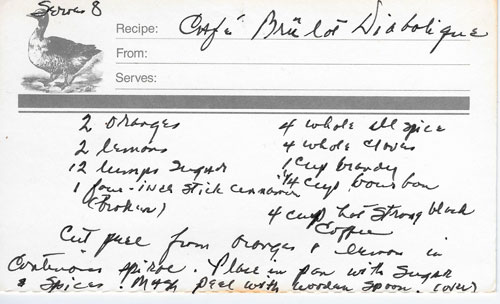 Serves 8
Recipe: Café Brûlot Diabolique
From:
Serves:
2 oranges
2 lemons
12 lumps sugar
1 four-inch stick cinnamon
(Broken)
4 whole all spice
4 whole cloves
1 cup brandy
1/4 cup bourbon
4 cup hot strong black
Coffee
Cut peel from oranges & lemon in
continuous spiral. Place in pan with sugar
& spices. Mash peel with wooden spoon. (over)